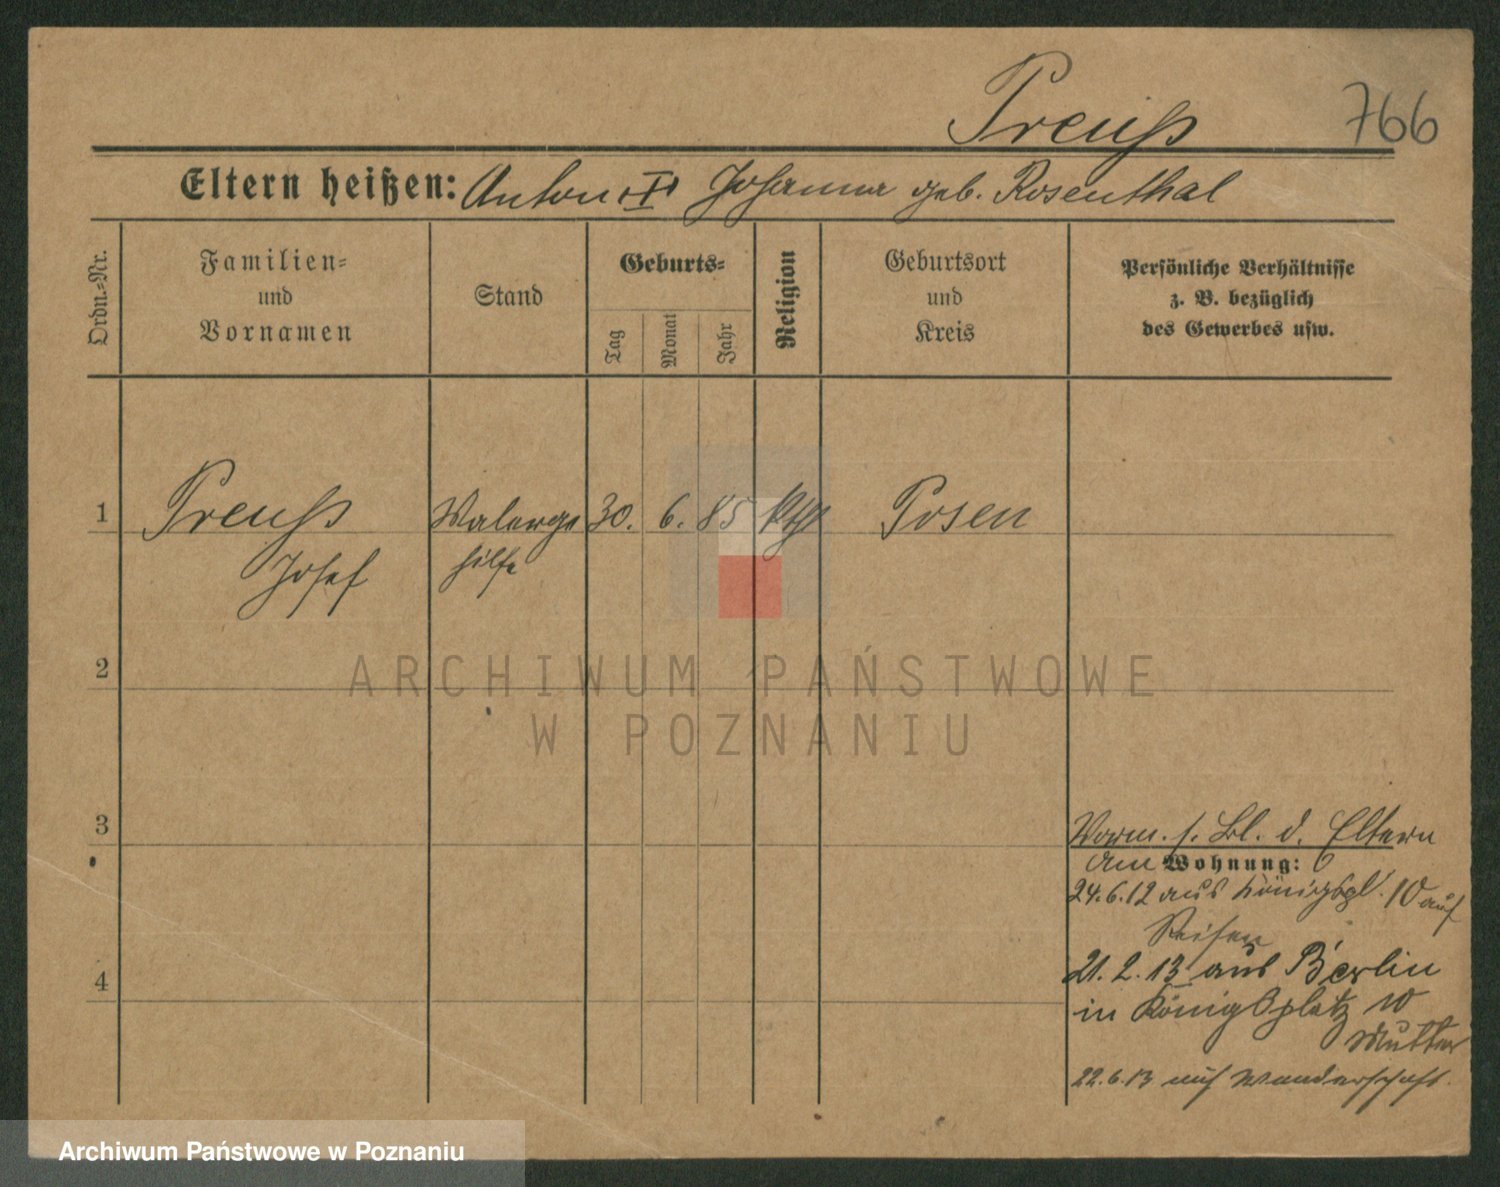 Preuß 766
Eltern heißen: Anton u. Johanna geb. Rosenthal
Ordn.-Nr.
Familien-
und
Vornamen
Stand
Geburts-
Tag
Monat
Jahr
Religion
Geburtsort
und
Kreis
Persönliche Verhältnisse
z. B. bezüglich
des Gewerbes usw.
1 Preuß 30. 6. 85 kth Posen
Josef
hilfe
2
3
4
Vorm. s. Bl. d. Eltern
am Wohnung:
24.6.12 aus Königspl. 10 auf
Reisen
21.2.13 aus Berlin
in Königsplatz 10
Mutter
22.6.13 auf Wanderschaft.
ARCHIWUM PAŃSTWOWE
W POZNANIU
Archiwum Państwowe w Poznaniu